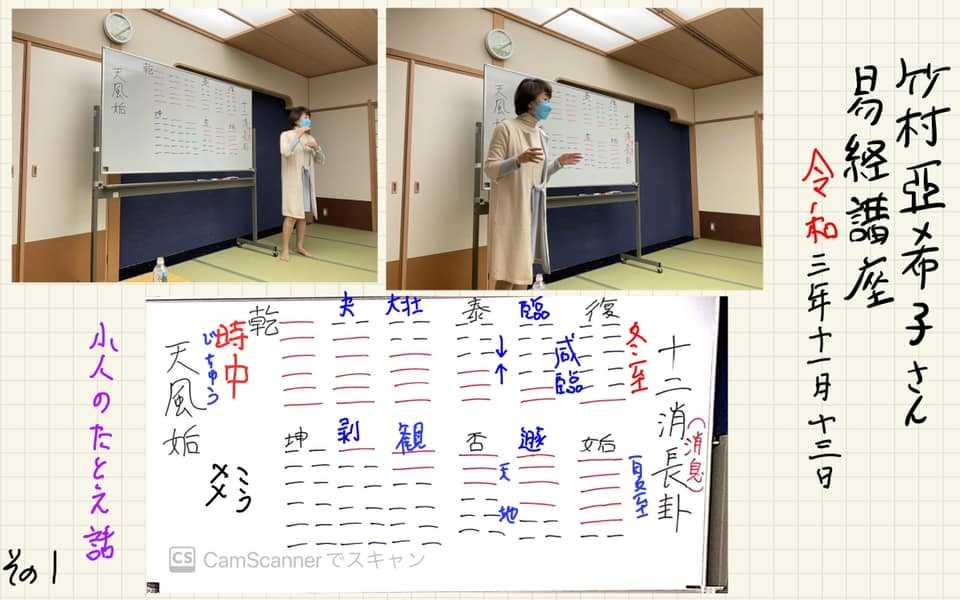 竹村亞希子さん
易経講座
令和三年十一月十三日
十二消長卦
(消息)
復
臨
泰
大壮
夬
乾
冬至
咸臨
↓↑
時中
じちゅう
天風姤
姤
遯
否
観
剥
坤
夏至
天
地
小人のたとえ話
その1
CS CamScannerでスキャン